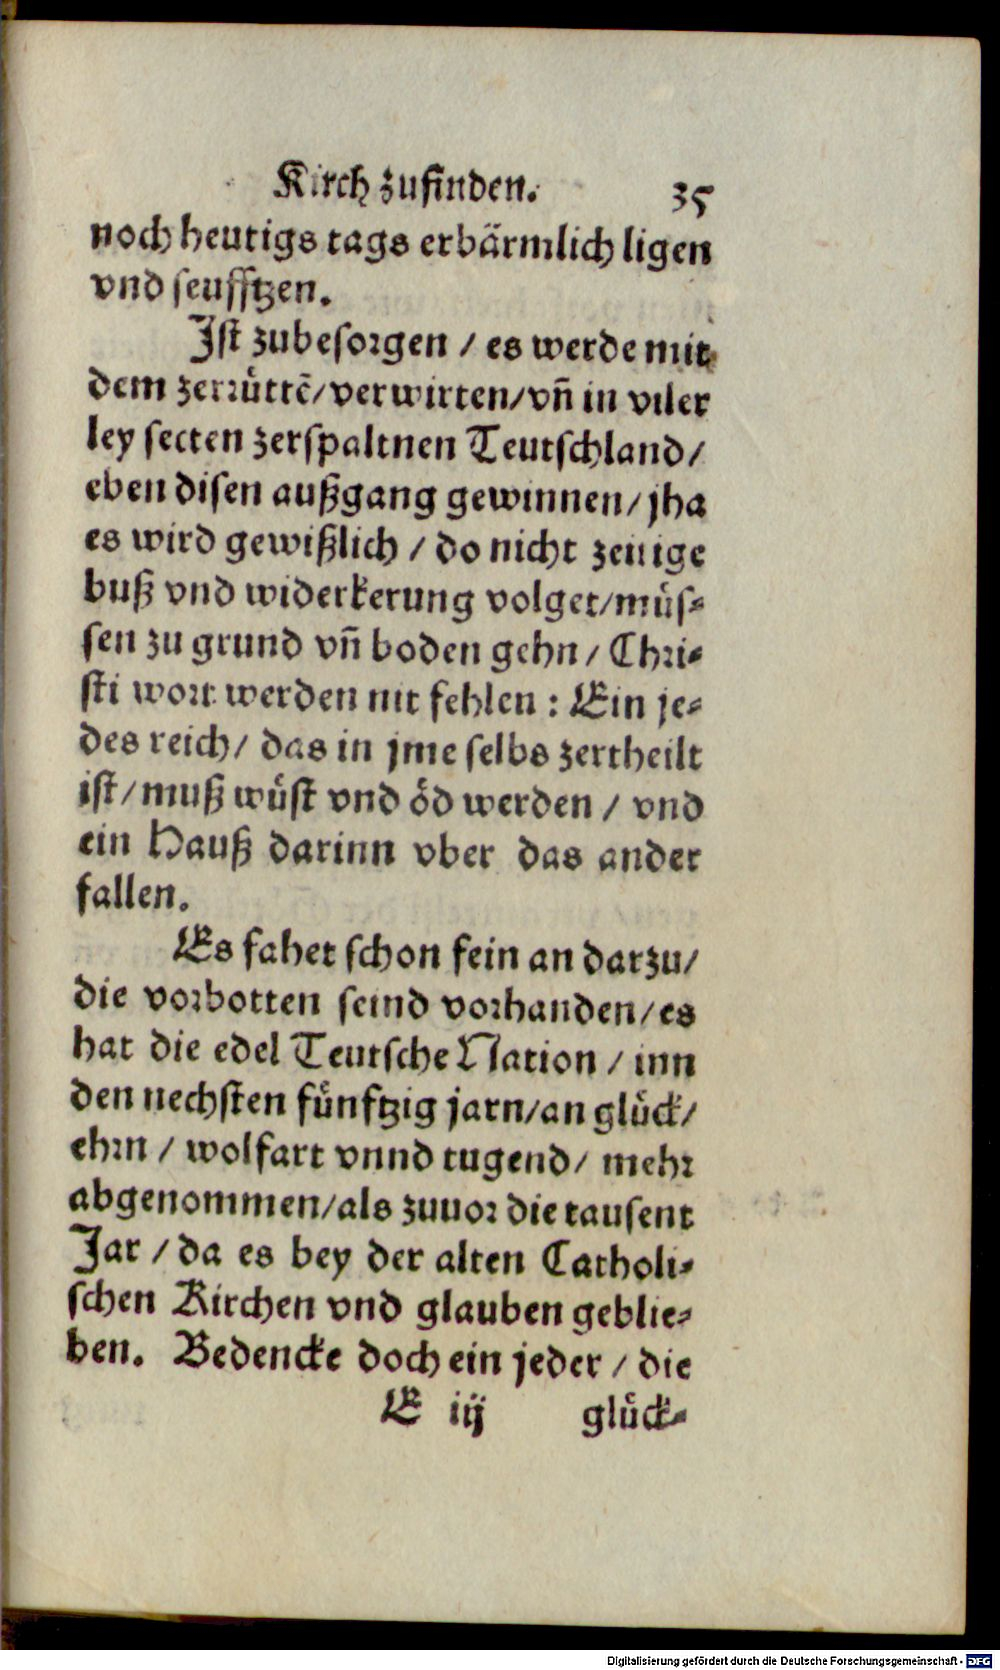 Kirch zufinden. 35
noch heutigs tags erbärmlich ligen
vnd seufftzen.
Ist zubesorgen / es werde mit
dem zerrüttē/verwirten/vñ in viler
ley secten zerspaltnen Teutschland/
eben disen außgang gewinnen/ jha
es wird gewißlich / do nicht zeitige
buß vnd widerkerung volget/müs-
sen zu grund vñ boden gehn / Chri-
sti wort werden nit fehlen : Ein je-
des reich/ das in jme selbs zertheilt
ist/muß wüst vnd öd werden / vnd
ein Hauß darinn vber das ander
fallen.
Es fahet schon fein an darzu/
die vorbotten seind vorhanden/es
hat die edel Teutsche Nation / inn
den nechsten fünftzig jarn/an glück/
ehrn / wolfart vnnd tugend/ mehr
abgenommen/als zuuor die tausent
Jar / da es bey der alten Catholi-
schen Kirchen vnd glauben geblie-
ben. Bedencke doch ein jeder / die
E iij glück-
Digitalisierung gefördert durch die Deutsche Forschungsgemeinschaft - DFG